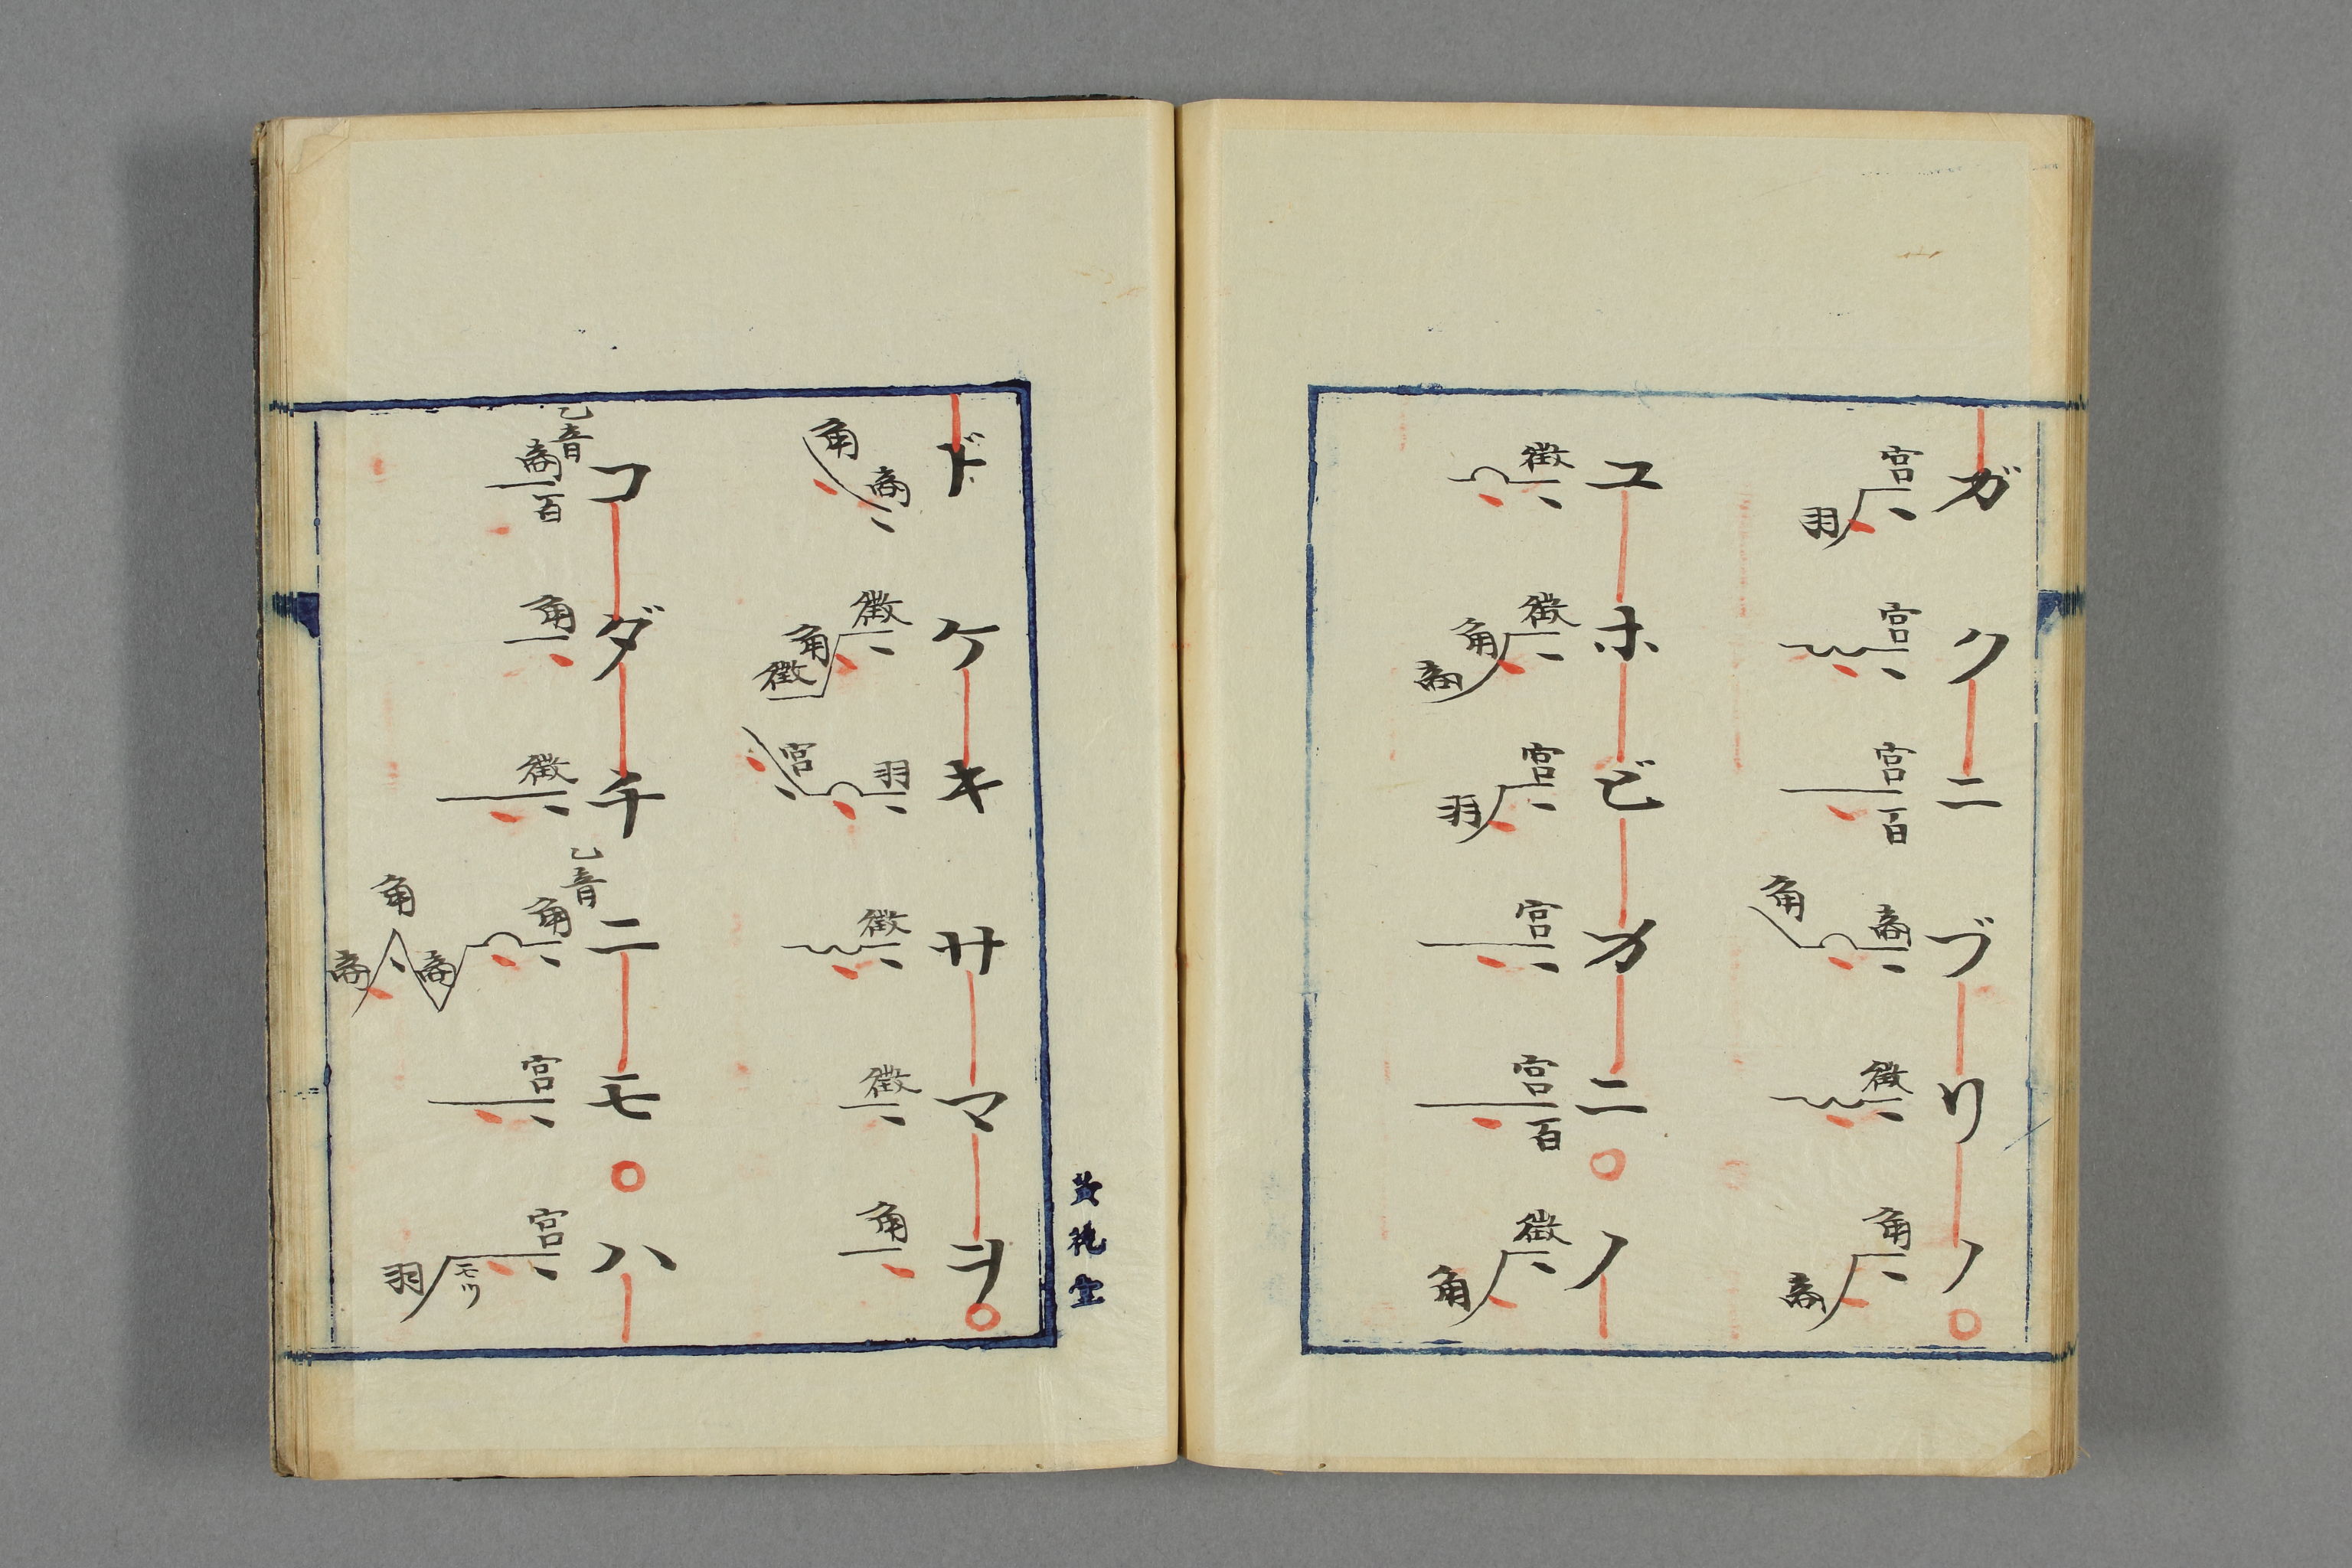 ガクニブリノ
宮羽
宮
宮百
商角
徴
角商
ユホビカニノ
徴
徴角商
宮羽
宮
宮百
徴角
ドケキサマヲ
商角
徴角徴
羽宮
徴
徴
角
コダチニモハ
乙音商百
角
徴
乙音角商角商
宮
宮モツ羽